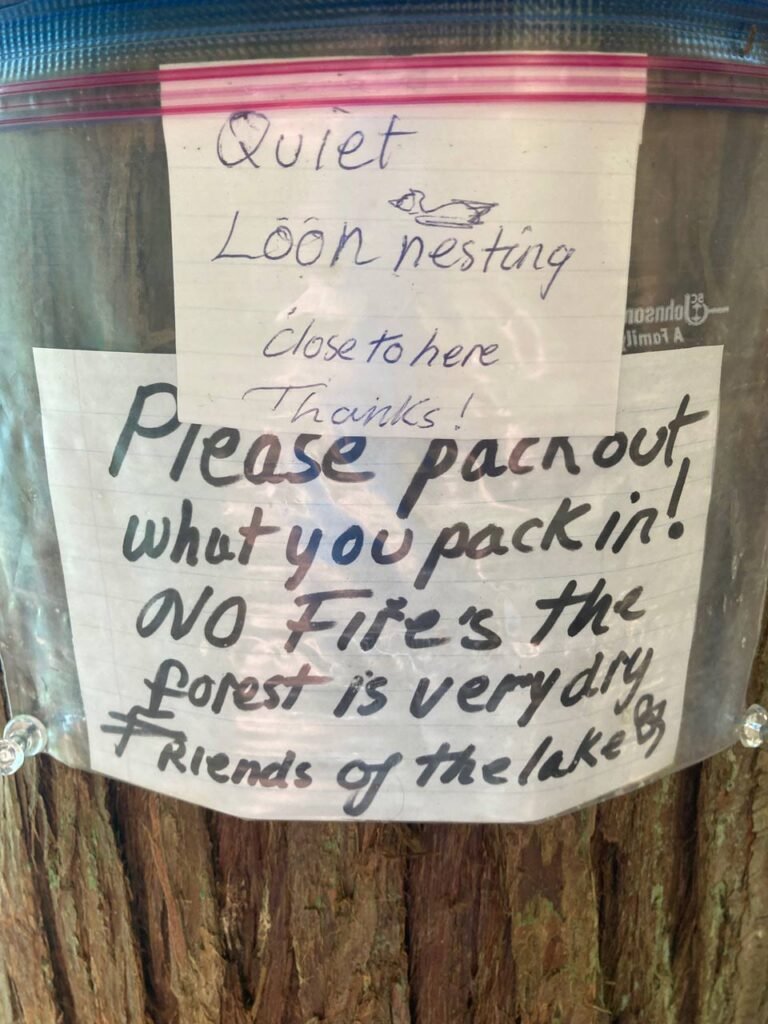 Quiet
Löön nesting
close to here
Thanks!
Please pack out
what you pack in!
NO Fire's the
forest is very dry
Friends of the lake
SC Johnson
A Family